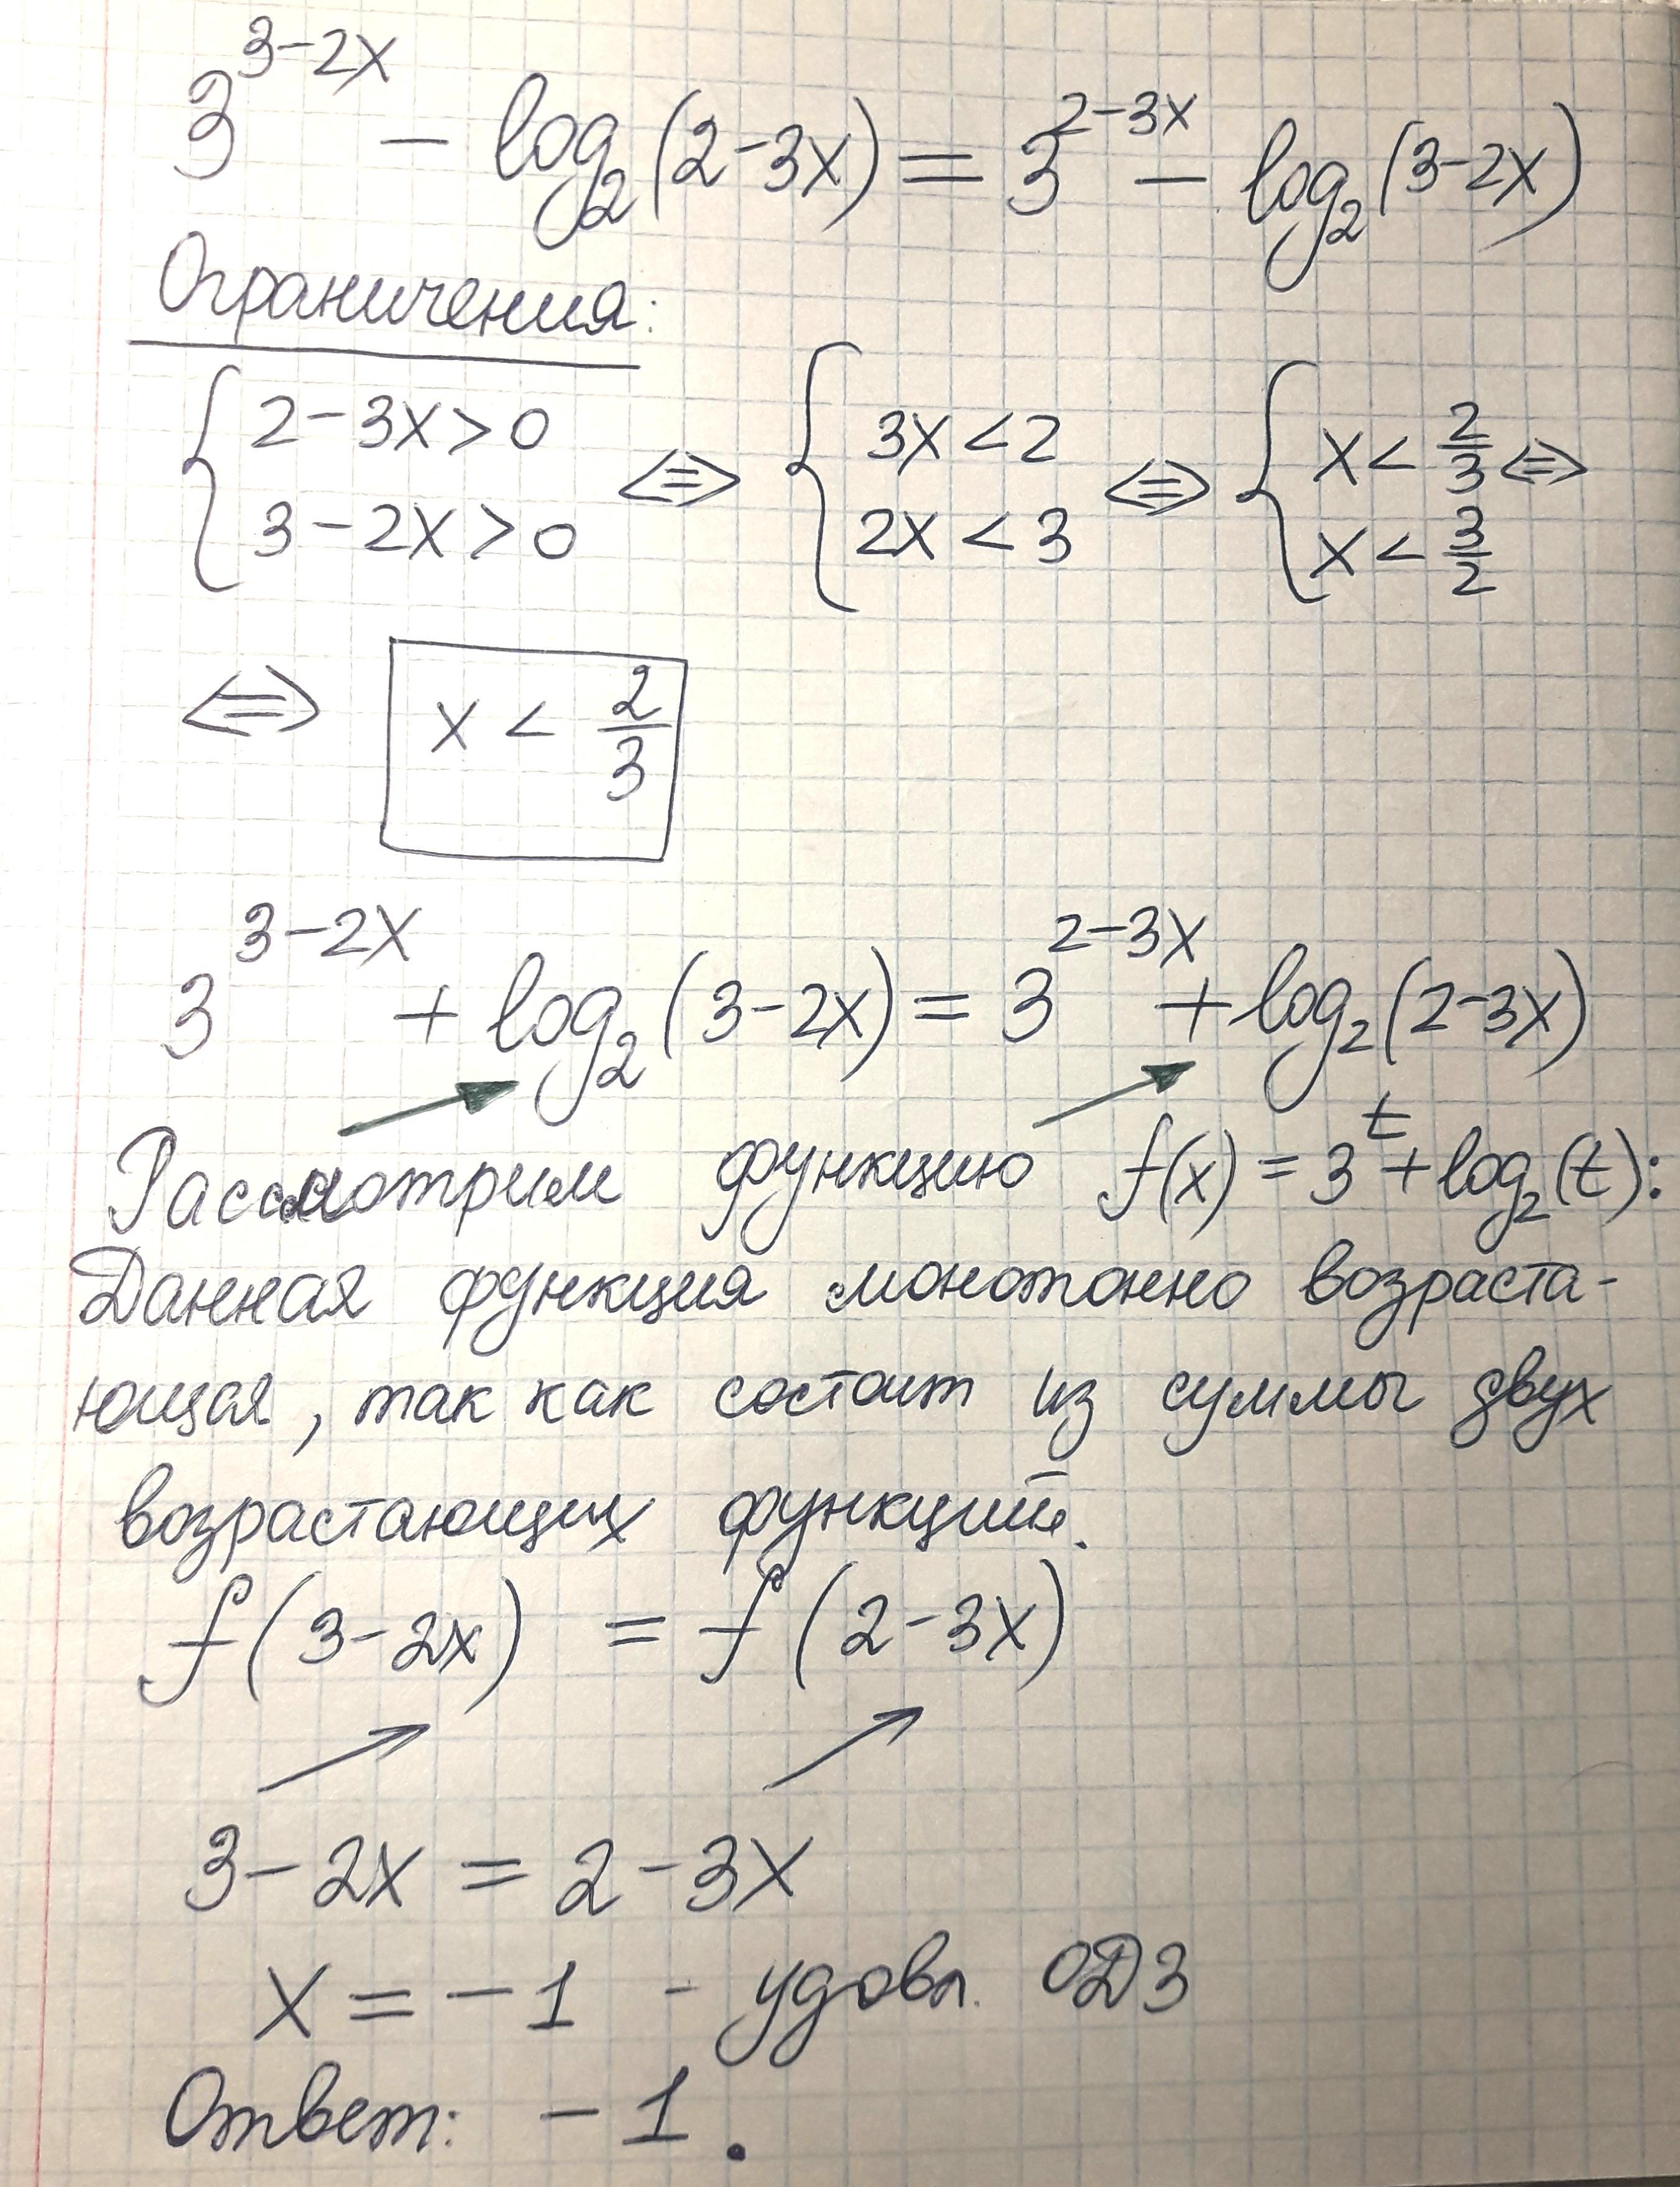 3^{3-2x} - log_2(2-3x) = 3^{2-3x} - log_2(3-2x)
Ограничения:
{ 2-3x>0 ; 3-2x>0 <=> { 3x<2 ; 2x<3 <=> { x<2/3 ; x<3/2 <=>
<=> x < 2/3
3^{3-2x} + log_2(3-2x) = 3^{2-3x} + log_2(2-3x)
Рассмотрим функцию f(x) = 3^t + log_2(t):
Данная функция монотонно возраста-
ющая, так как состоит из суммы двух
возрастающих функций.
f(3-2x) = f(2-3x)
3-2x = 2-3x
x = -1 - удовл. ОДЗ
Ответ: -1.